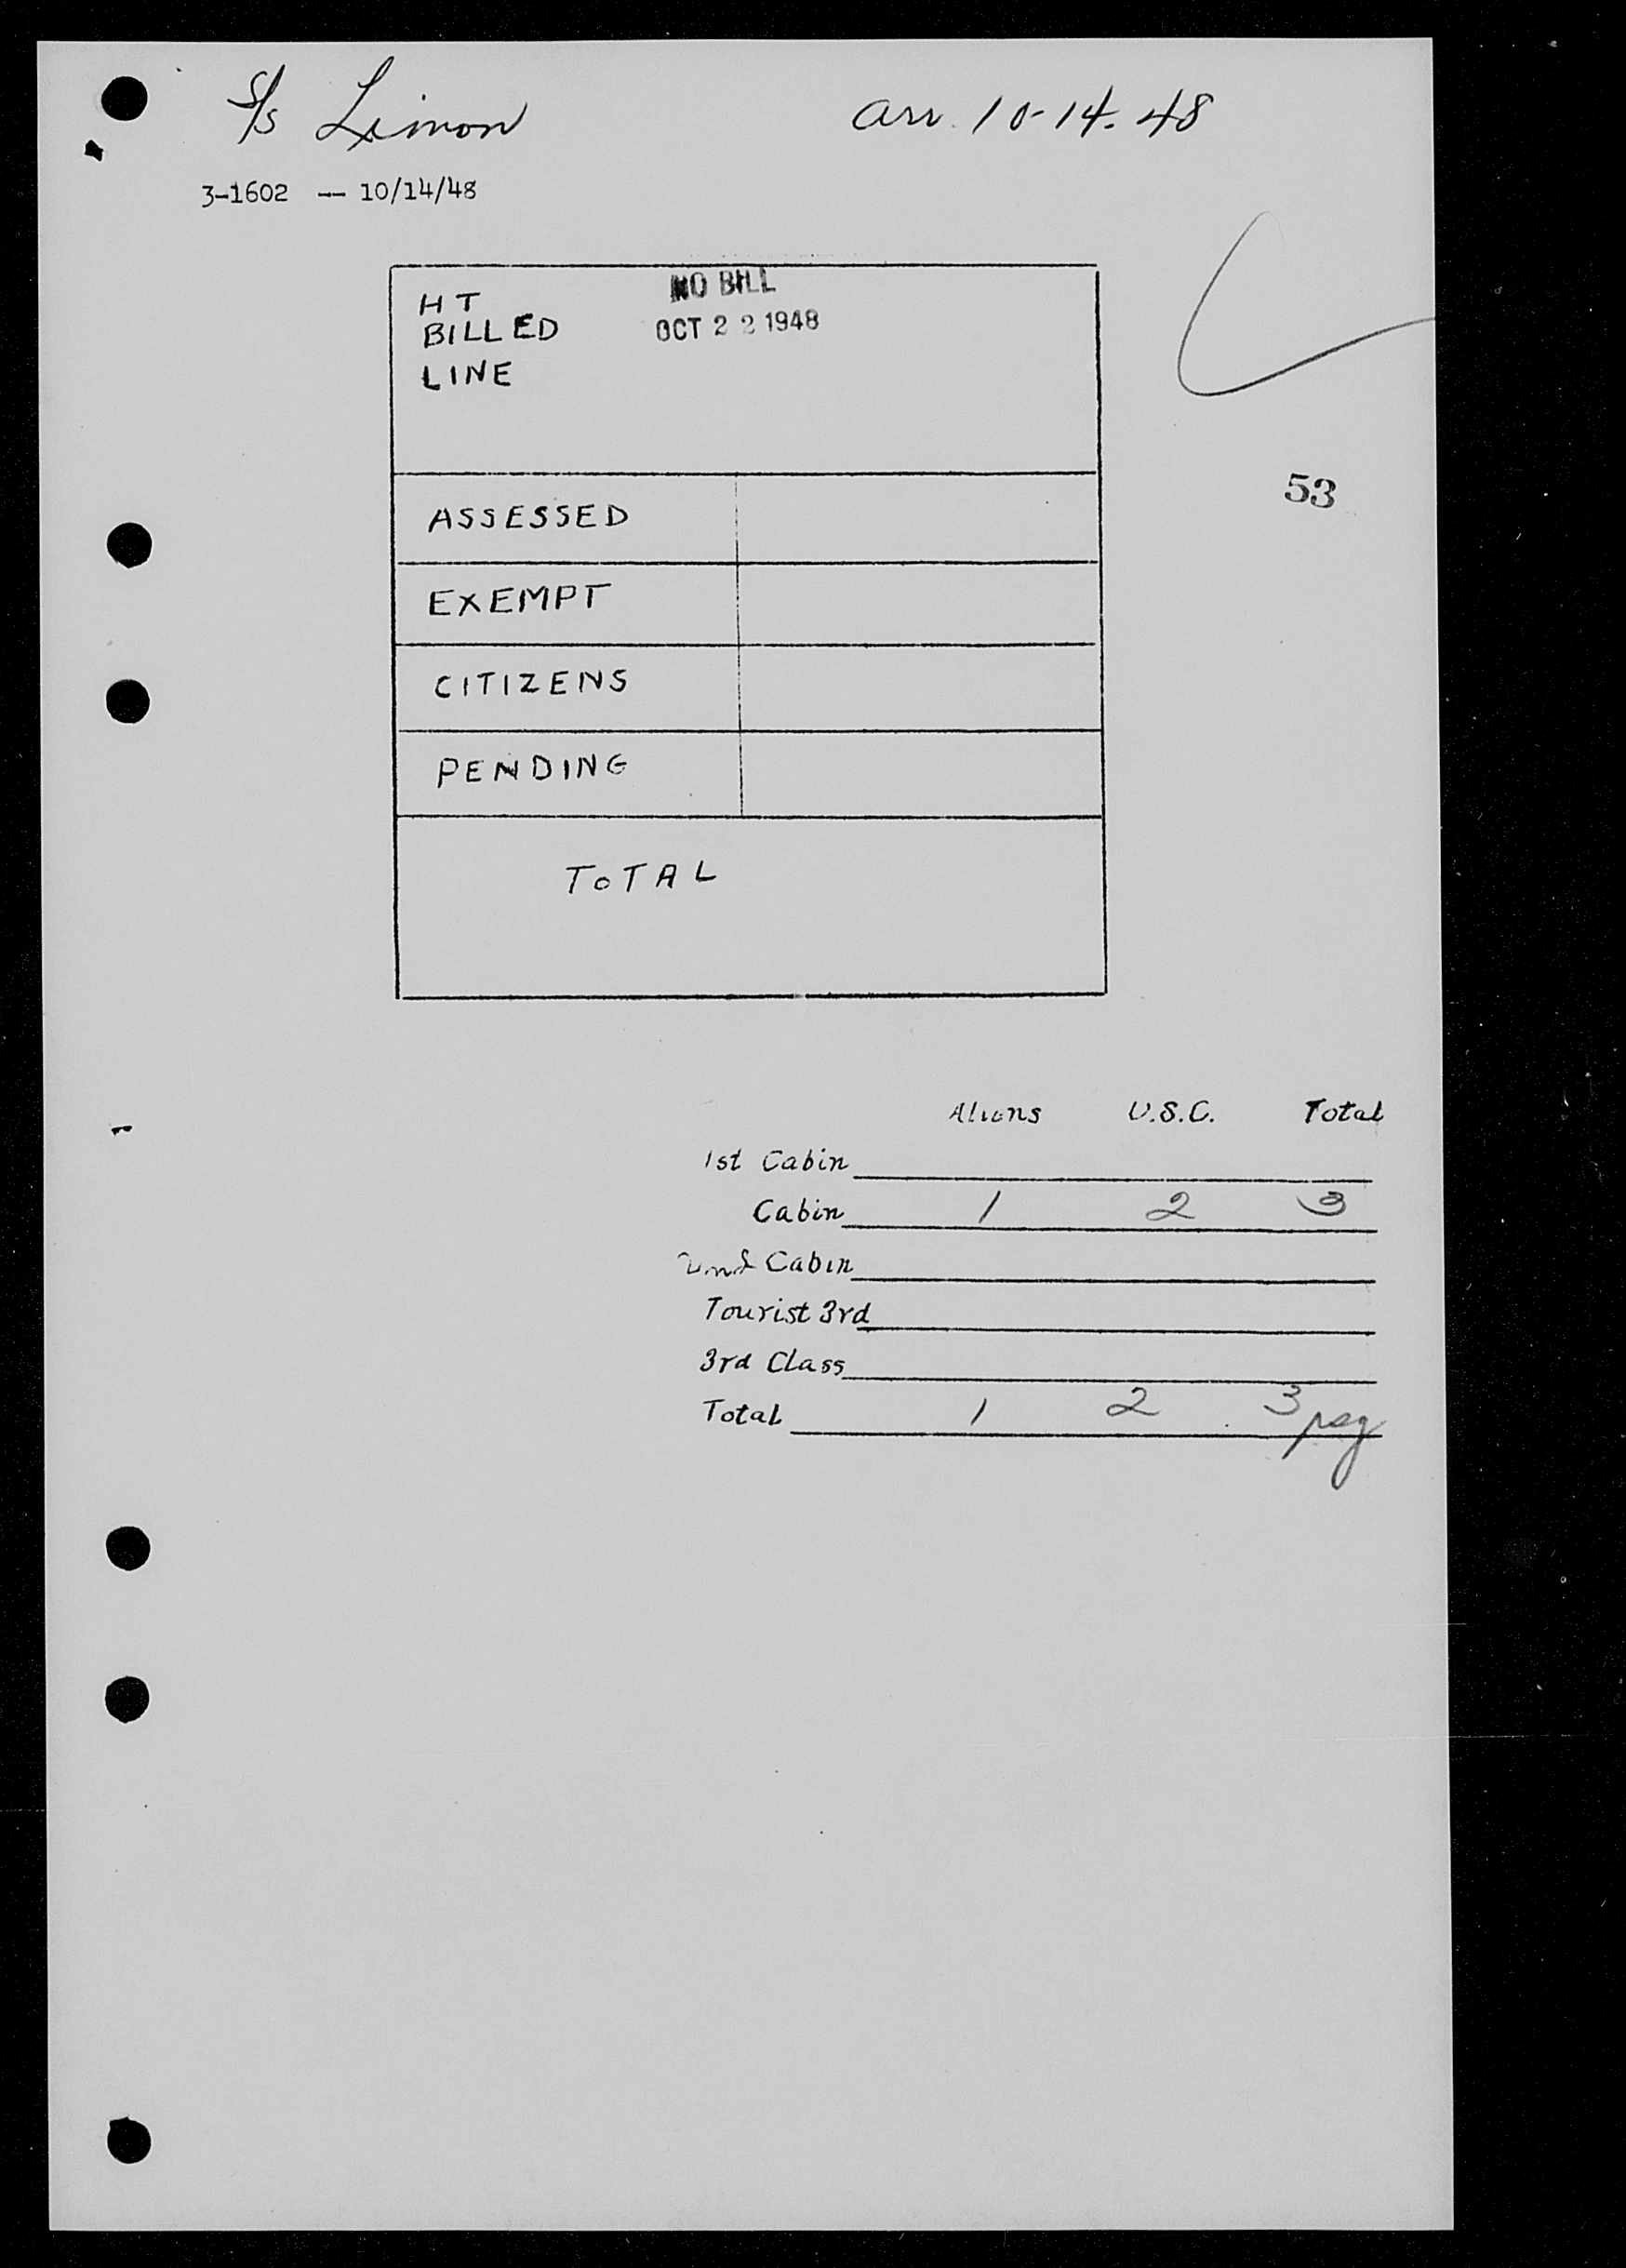 S/s Limon arr. 10-14-48
3-1602 -- 10/14/48
NO BILL
HT
BILLED OCT 22 1948
LINE
53
ASSESSED
EXEMPT
CITIZENS
PENDING
TOTAL
Aliens U.S.C. Total
1st Cabin
Cabin 1 2 3
2nd Cabin
Tourist 3rd
3rd Class
Total 1 2 3 psg